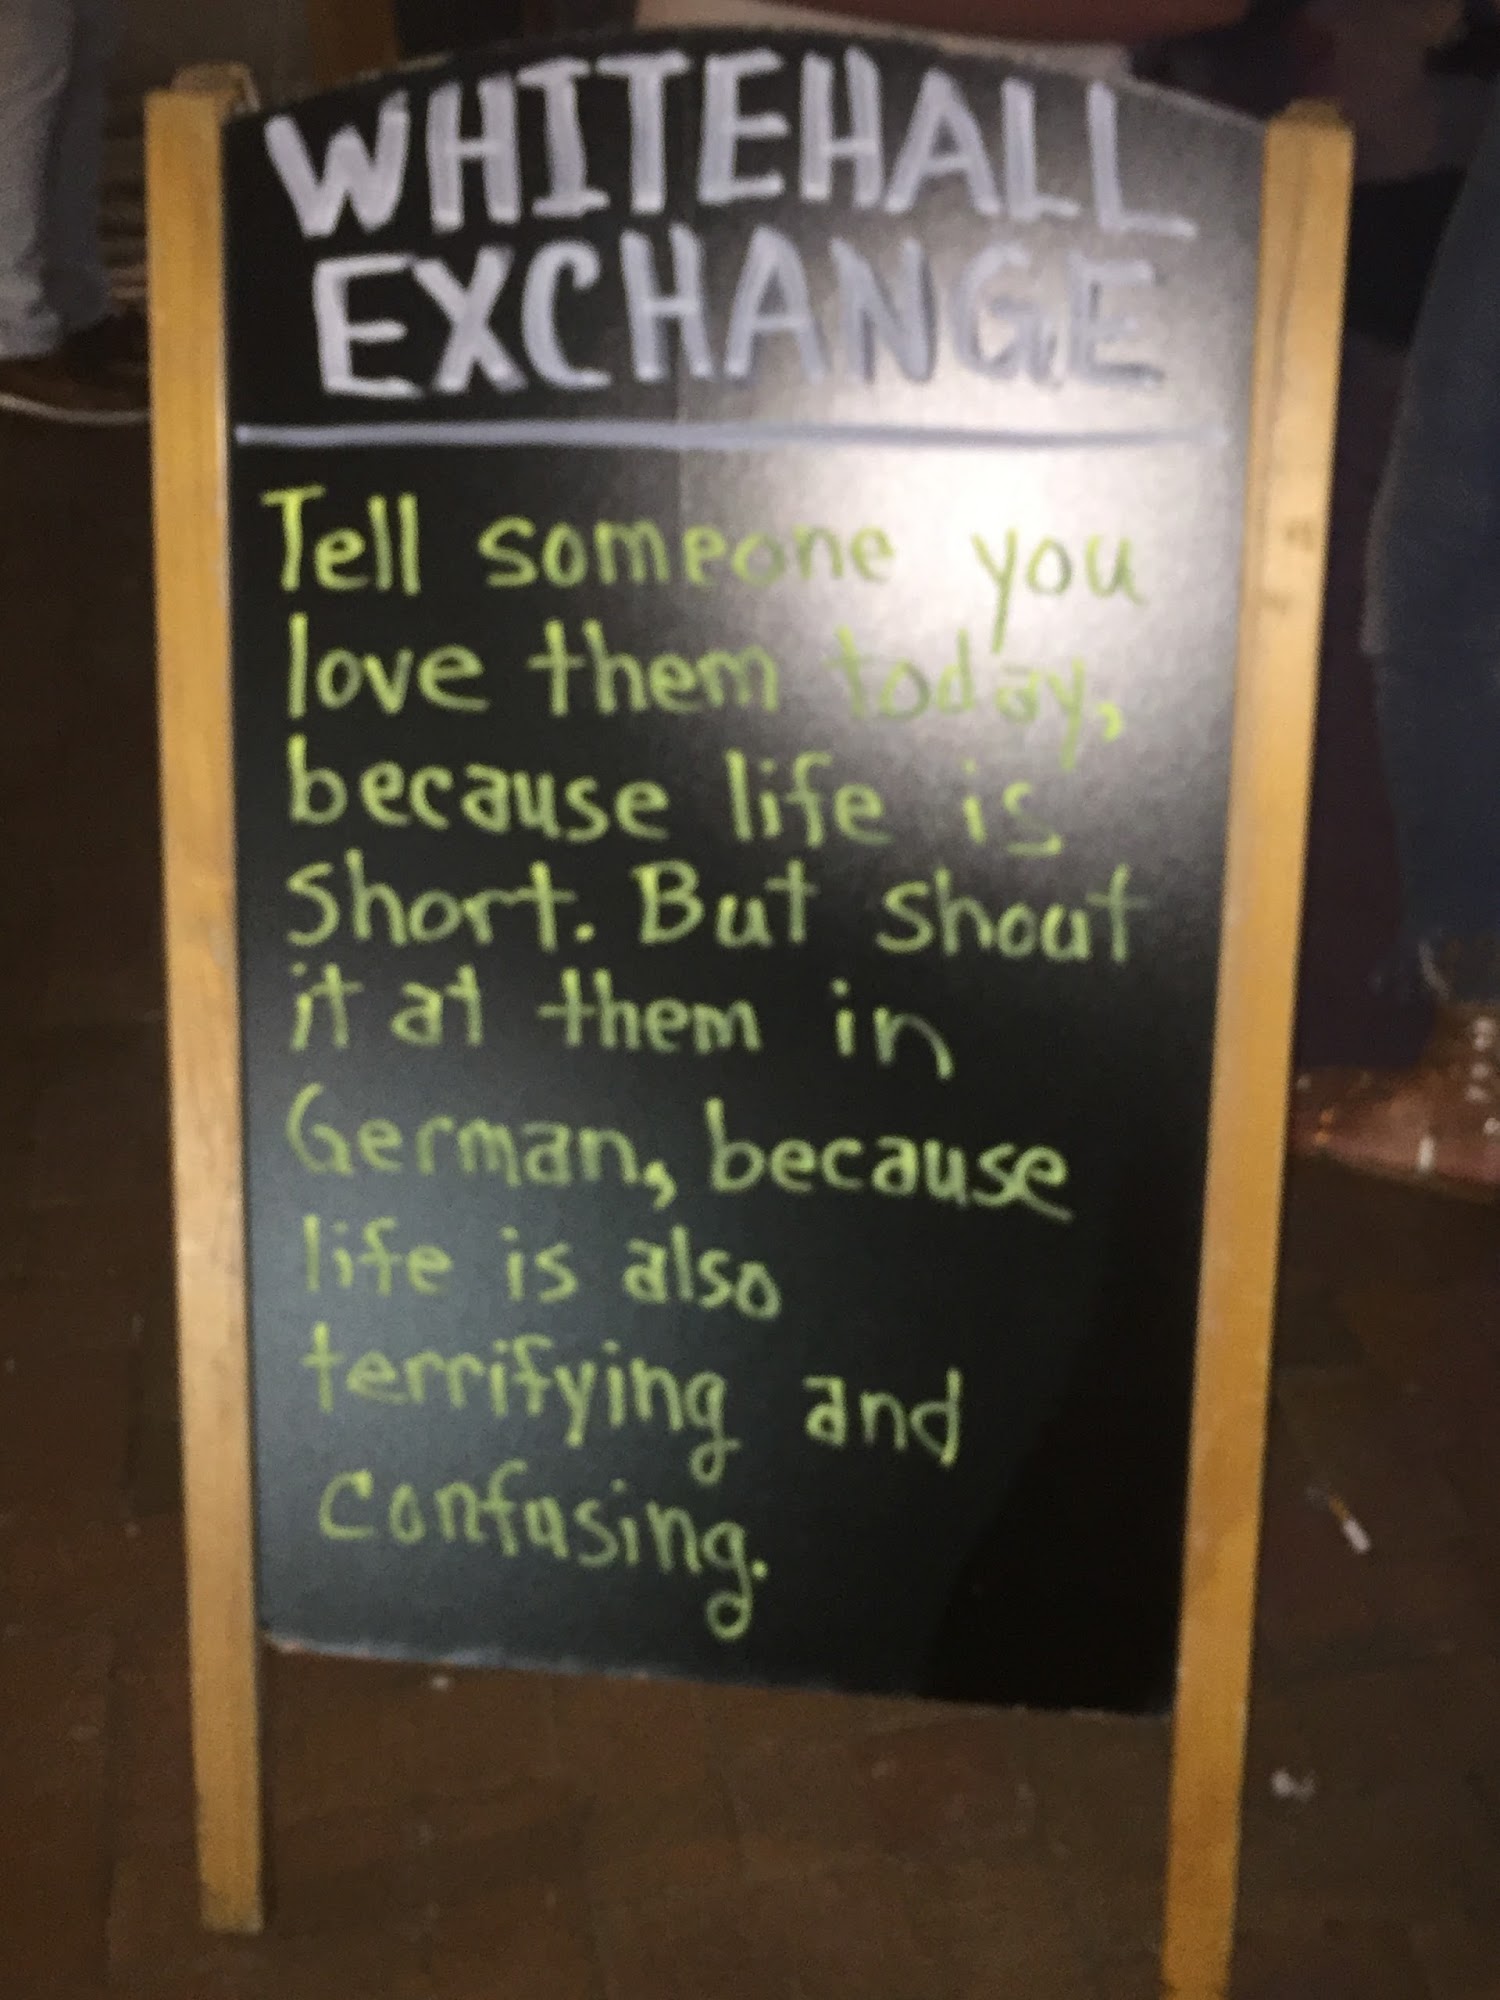 WHITEHALL
EXCHANGE
Tell someone you
love them today,
because life is
short. But shout
it at them in
German, because
life is also
terrifying and
confusing.